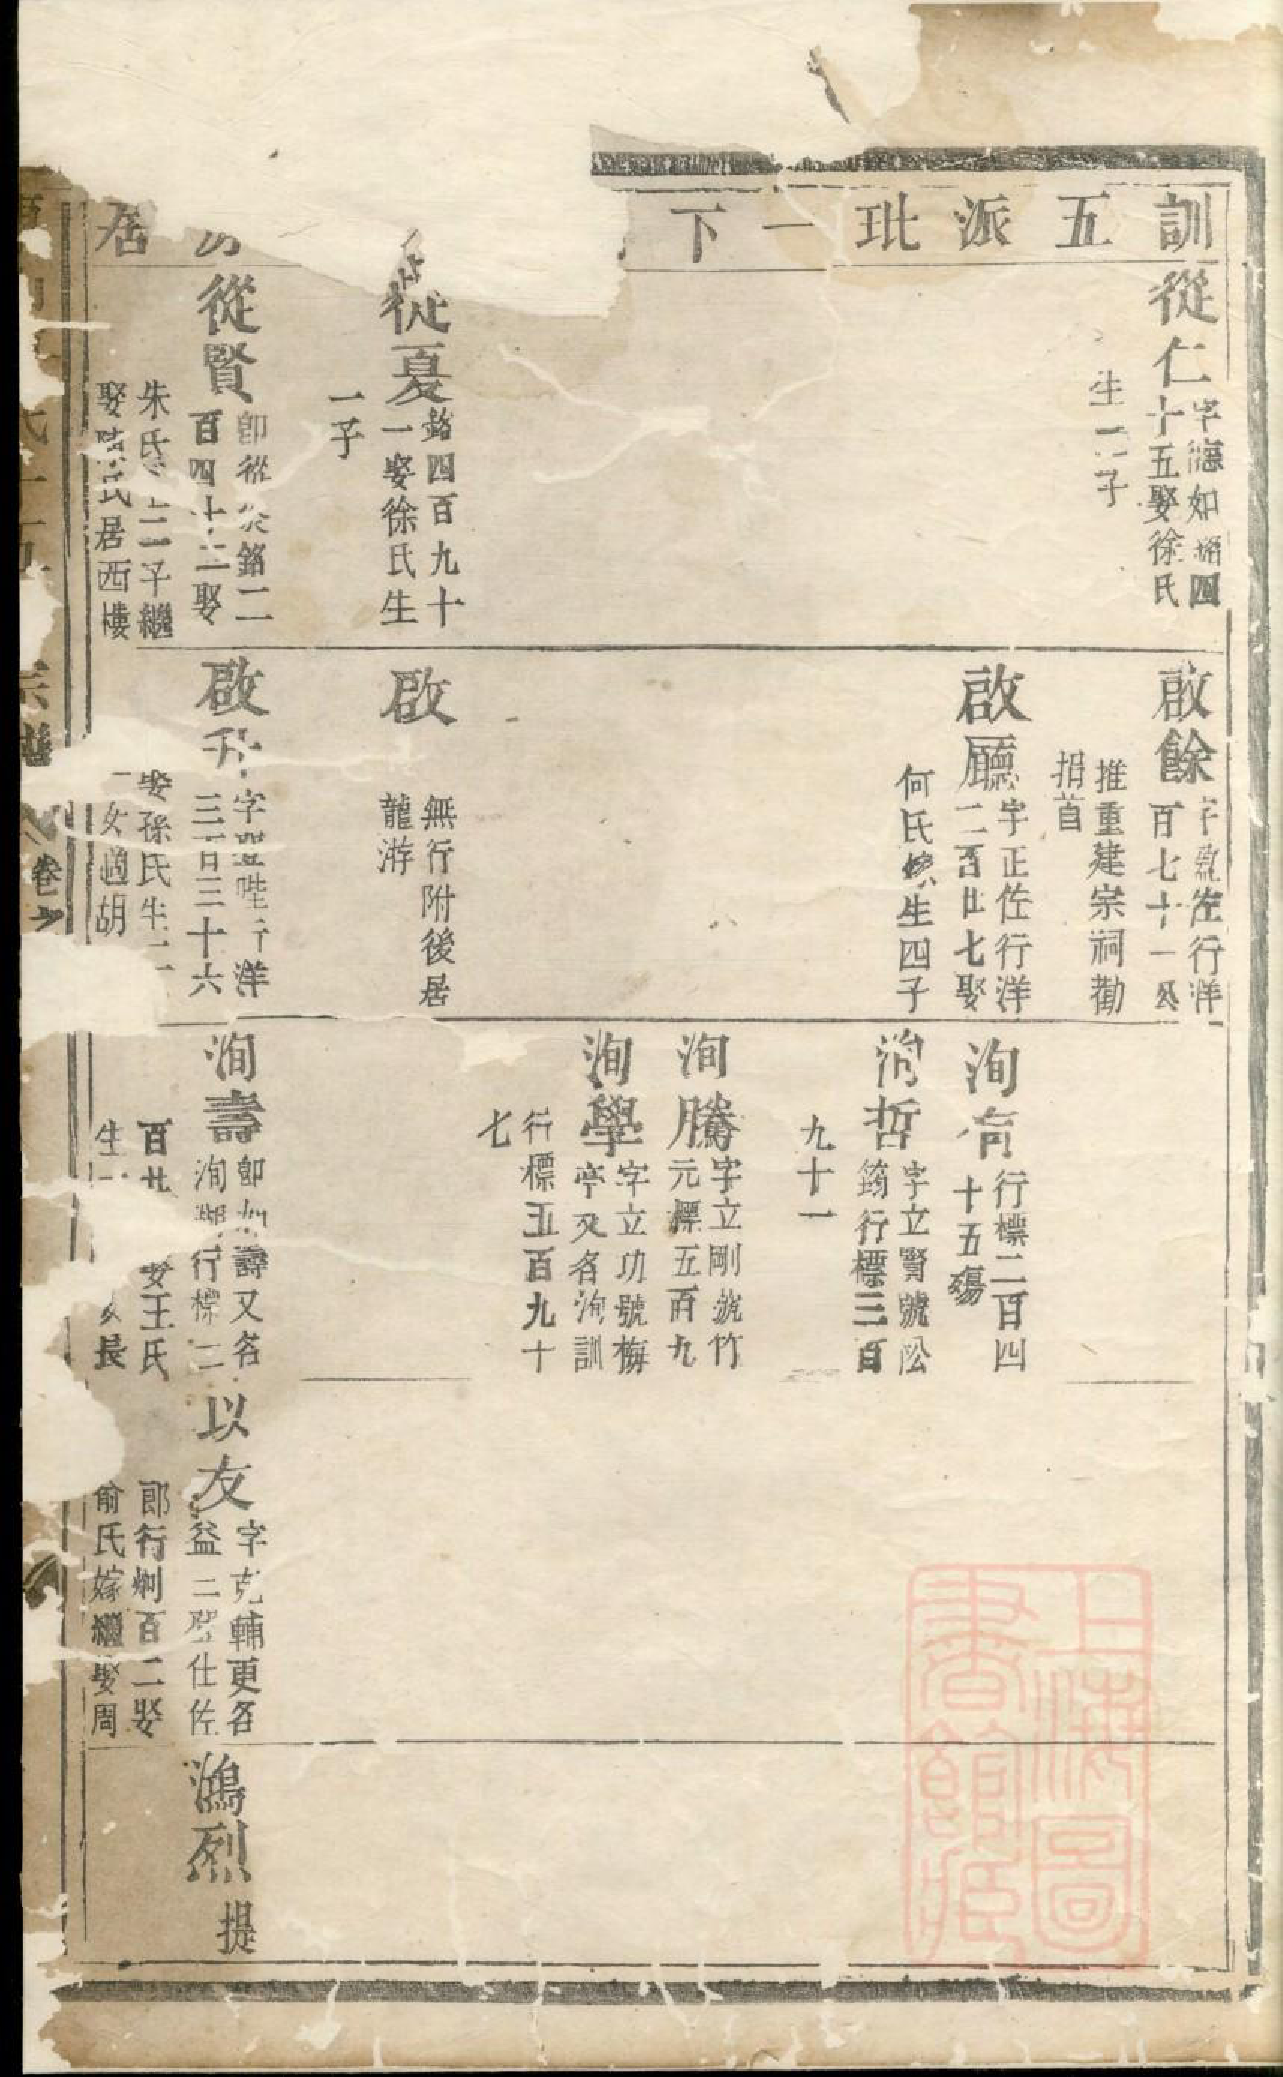 訓五派玭一下
居
從仁
字德如
四
十五娶徐氏
生二子
從夏
銘四百九十
一娶徐氏生
一子
從賢
即從
銘二
百四十二娶
朱氏
二子繼
娶
氏居西樓
啟餘
字
左行洋
百七十一公
推重建宗祠勸
捐首
啟廳
字正佐行洋
二百廿七娶
何氏
生四子
啟
無行附後居
龍游
啟
字
行洋
三百三十六
娶孫氏生
女適胡
洵
行標二百四
十五殤
洵哲
字立賢號松
筠行標三百
九十一
洵騰
字立剛號竹
元標五百九
洵學
字立功號梅
亭又名洵訓
行標五百九十
七
洵壽
即
壽又名
洵
行標二
百廿
娶王氏
生
長
以友
字克輔更名
益
仕佐
郎行
百二娶
俞氏嫁繼娶周
鴻烈
提
卷之
上海圖書館藏